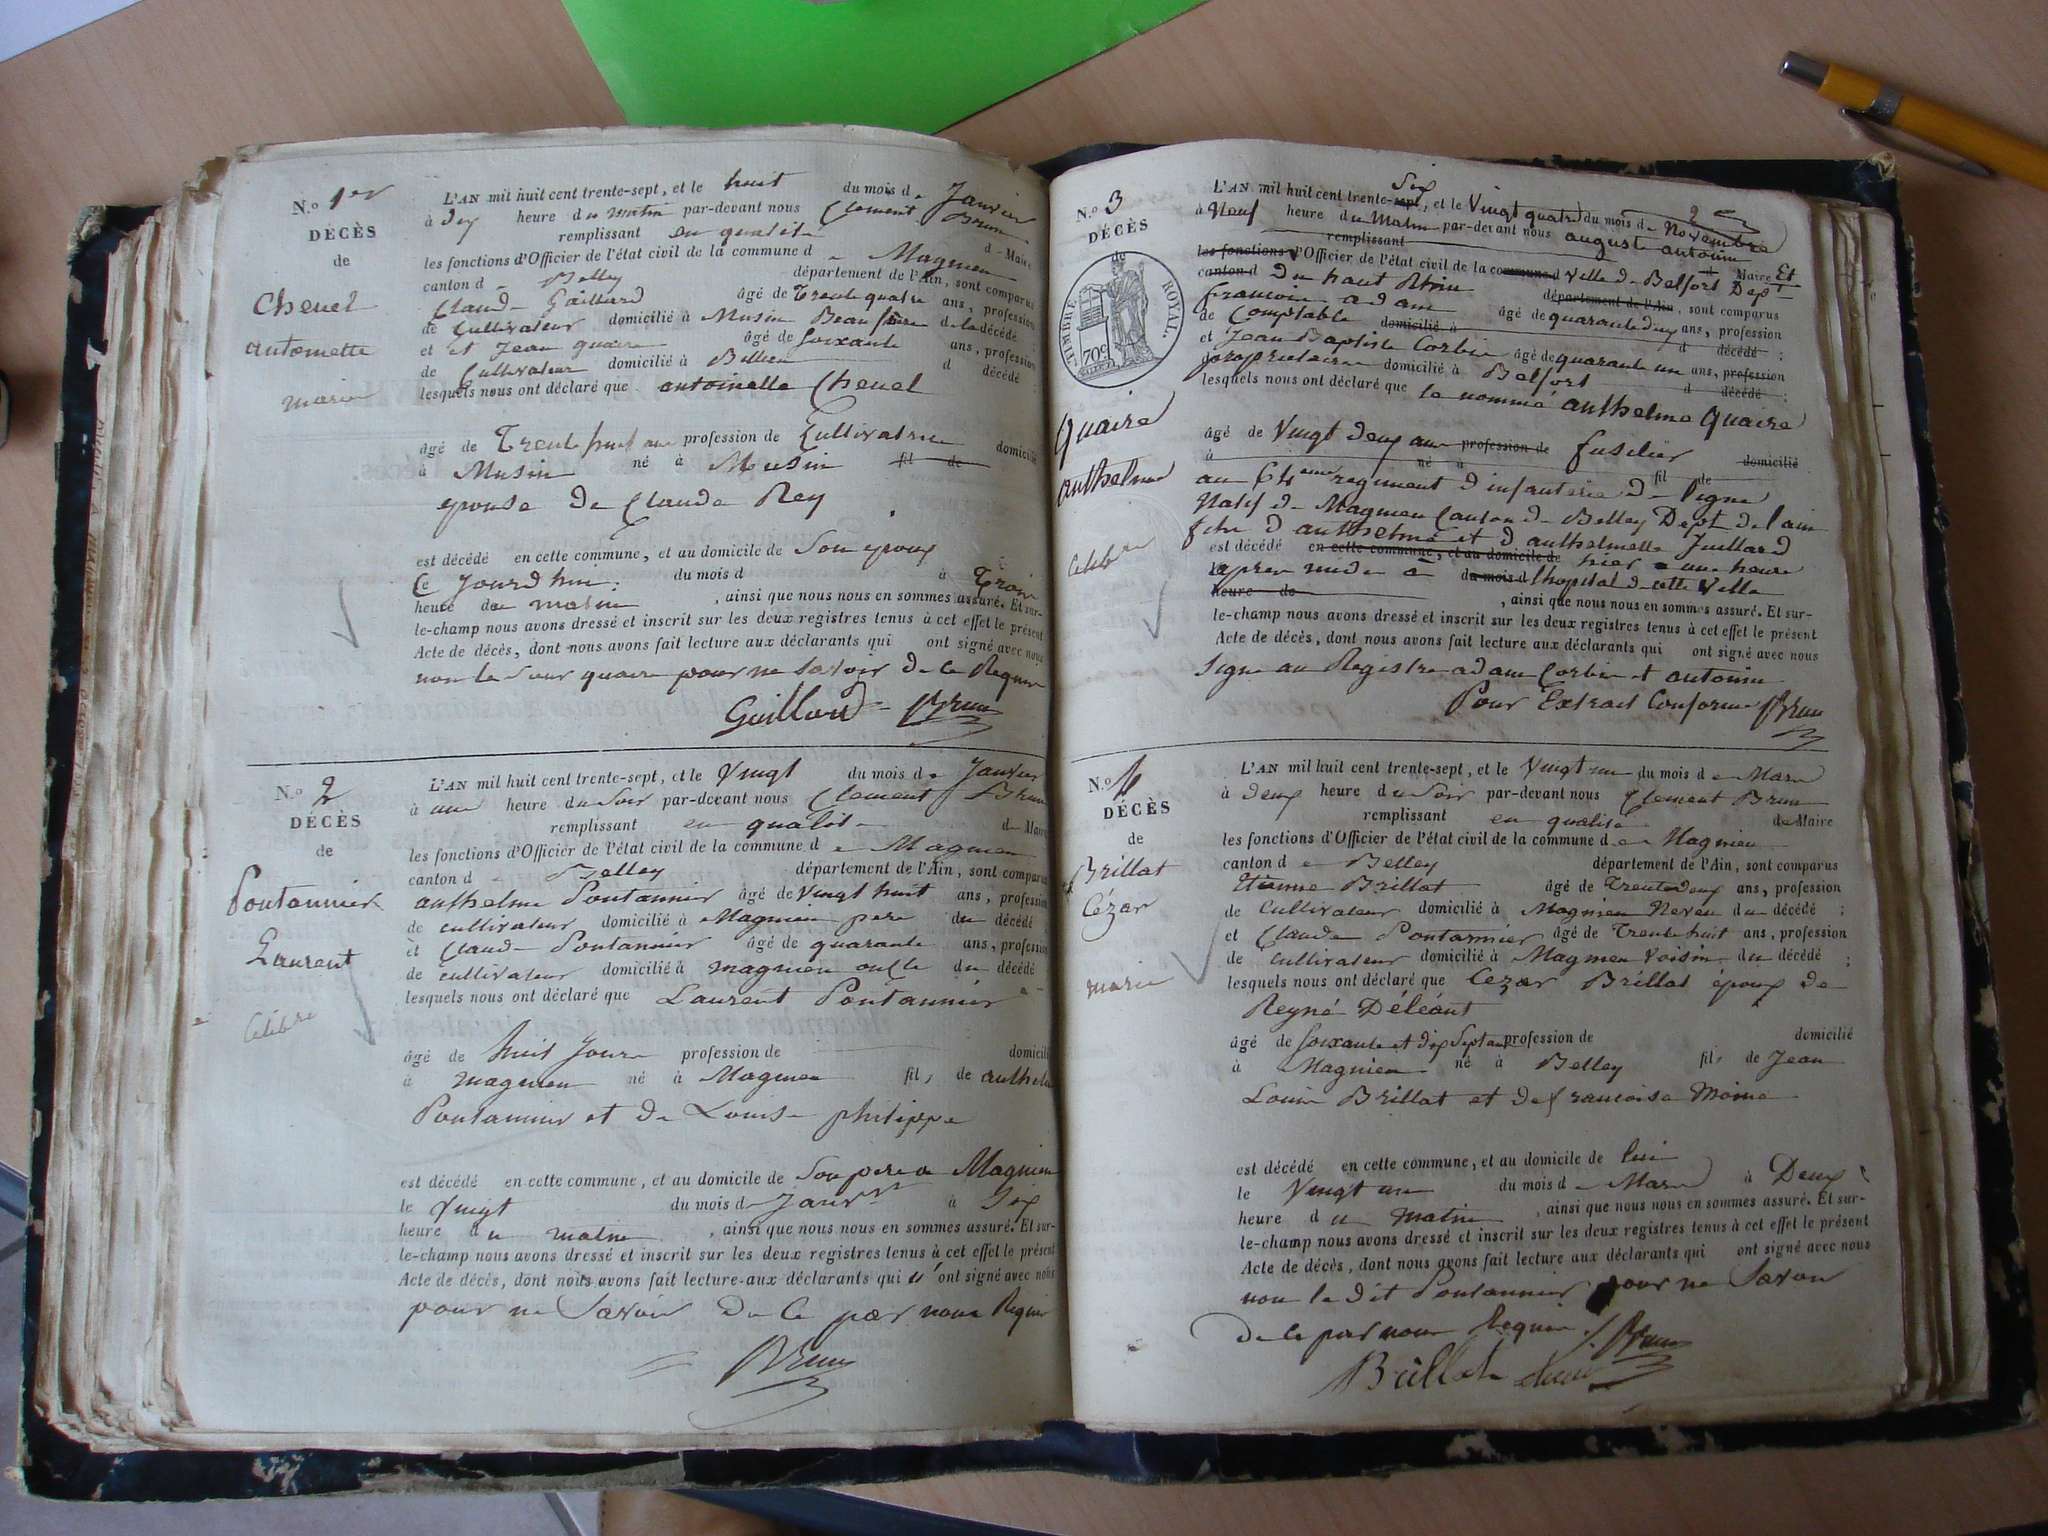 N.º 1er
DÉCÈS
de
Chenet
antoinette
marié
L'AN mil huit cent trente-sept, et le huit du mois de Janvier
à dix heure du matin par-devant nous Clement Brun
remplissant en qualité de Maire
les fonctions d'Officier de l'état civil de la commune de Magnieu
canton de Belley département de l'Ain, sont comparus
Claude Gaillard âgé de Trente quatre ans, profession
de Cultivateur domicilié à Musin Beau frère de la décédé ;
et et Jean quaire âgé de Soixante ans, profession
de Cultivateur domicilié à Billieu d décédé ;
lesquels nous ont déclaré que antoinette Chenet
âgé de Trente huit ans profession de Cultivatrice domicilié
à Musin né à Musin fil de
epouse de Claude Rey
est décédé en cette commune, et au domicile de Son epoux
Ce Jourd'hui du mois d à Trois
heure du matin , ainsi que nous nous en sommes assuré. Et sur-
le-champ nous avons dressé et inscrit sur les deux registres tenus à cet effet le présent
Acte de décès, dont nous avons fait lecture aux déclarants qui ont signé avec nous
non le Sieur quaire pour ne Savoir de ce Requis
Gaillard Brun
N.º 2
DÉCÈS
de
Pontannier
Laurent
Celibre
L'AN mil huit cent trente-sept, et le Vingt du mois de Janvier
à une heure du Soir par-devant nous Clement Brun
remplissant en qualité de Maire
les fonctions d'Officier de l'état civil de la commune de Magnieu
canton d Belley département de l'Ain, sont comparus
anthelme Pontannier âgé de Vingt huit ans, profession
de cultivateur domicilié à Magnieu pere du décédé
et Claude Pontannier âgé de quarante ans, profession
de cultivateur domicilié à magnieu oncle du décédé
lesquels nous ont déclaré que Laurent Pontannier
âgé de huit Jours profession de domicilié
à magnieu né à Magnieu fils de anthelme
Pontannier et de Louise philippe
est décédé en cette commune, et au domicile de Son pere a Magnieu
le Vingt du mois de Janvier à Six
heure du matin , ainsi que nous nous en sommes assuré. Et sur-
le-champ nous avons dressé et inscrit sur les deux registres tenus à cet effet le présent
Acte de décès, dont nous avons fait lecture aux déclarants qui n'ont signé avec nous
pour ne Savoir de ce par nous Requis
Brun
N.º 3
DÉCÈS
de
TIMBRE ROYAL.
70c
Quaire
anthelme
Celibre
L'AN mil huit cent trente-sept Six, et le Vingt quatre du mois de Novembre
à Neuf heure du Matin par-devant nous auguste antonin
remplissant d Maire Et
les fonctions d'Officier de l'état civil de la commune d Ville de Belfort Dept
canton d du haut Rhin département de l'Ain, sont comparus
francois adam âgé de quarante deux ans, profession
de Comptable domicilié à d décédé ;
et Jean Baptiste Corbin âgé de quarante un ans, profession
proprietaire domicilié à Belfort d décédé ;
lesquels nous ont déclaré que le nommé anthelme Quaire
âgé de Vingt deux ans profession de fusilier domicilié
à né à fil de
au 64eme regiment d'infanterie de ligne
Natif de Magnieu Canton de Belley Dept de l'ain
fils d'anthelme et d'anthelmette Juillard
est décédé en cette commune, et au domicile de hier a une heure
apres midi à du mois d l'hopital de cette Ville
heure de , ainsi que nous nous en sommes assuré. Et sur-
le-champ nous avons dressé et inscrit sur les deux registres tenus à cet effet le présent
Acte de décès, dont nous avons fait lecture aux déclarants qui ont signé avec nous
Signe au Registre adam Corbin et antonin
Pour Extrait Conforme Brun
N.º 4
DÉCÈS
de
Brillat
Cézar
marié
L'AN mil huit cent trente-sept, et le Vingt un du mois de Mars
à deux heure du Soir par-devant nous Clement Brun
remplissant en qualité de Maire
les fonctions d'Officier de l'état civil de la commune de Magnieu
canton de Belley département de l'Ain, sont comparus
Etienne Brillat âgé de Trente deux ans, profession
de Cultivateur domicilié à Magnieu Neveu du décédé ;
et Claude Pontannier âgé de Trente huit ans, profession
de cultivateur domicilié à Magnieu Voisin du décédé ;
lesquels nous ont déclaré que Cezar Brillat époux de
Reyné Déléant
âgé de Soixante et dix Sept ans profession de domicilié
à Magnieu né à Belley fils de Jean
Louis Brillat et de francoise Moine
est décédé en cette commune, et au domicile de lui
le Vingt un du mois de Mars à Deux
heure du matin , ainsi que nous nous en sommes assuré. Et sur-
le-champ nous avons dressé et inscrit sur les deux registres tenus à cet effet le présent
Acte de décès, dont nous avons fait lecture aux déclarants qui ont signé avec nous
non le dit Pontannier pour ne Savoir
de ce par nous Requis Brun
Brillat